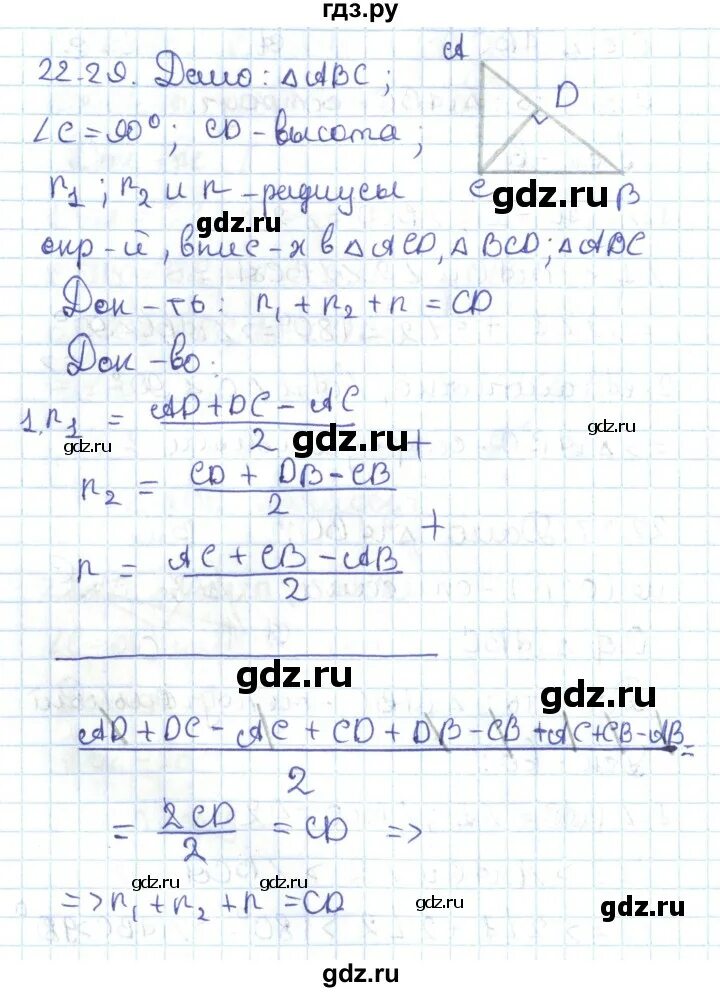 гдз.ру
22.29. Дано: △ABC;
∠C = 90°; CD - высота;
r₁; r₂ и r - радиусы
окр-й, впис-х в △ACD, △BCD; △ABC
A
D
C
B
gdz.ru
gdz.ru
Док-ть: r₁ + r₂ + r = CD
Док-во:
1. r₁ = (AD + DC - AC)/2 +
gdz.ru
gdz.ru
gdz.ru
r₂ = (CD + DB - CB)/2
+
r = (AC + CB - AB)/2
gdz.ru
gdz.ru
(AD + DC - AC + CD + DB - CB + AC + CB - AB)/2 =
= 2CD/2 = CD =>
gdz.ru
gdz.ru
=> r₁ + r₂ + r = CD
gdz.ru
gdz.ru
gdz.ru